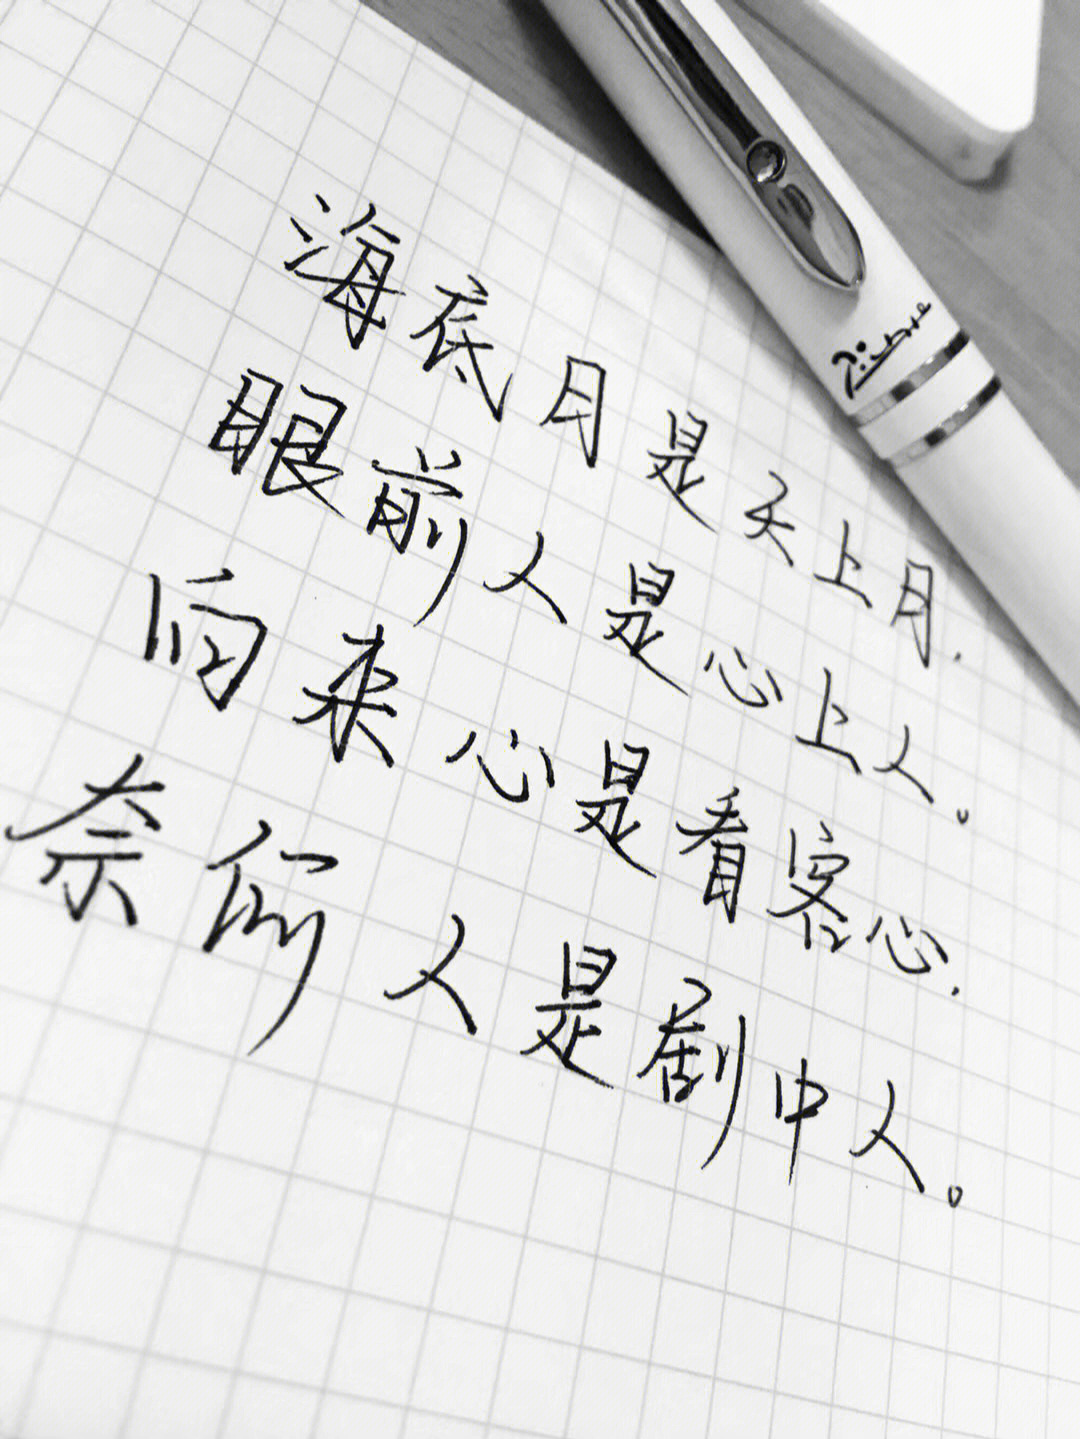 海底月是天上月.
眼前人是心上人。
向来心是看客心.
奈何人是剧中人。